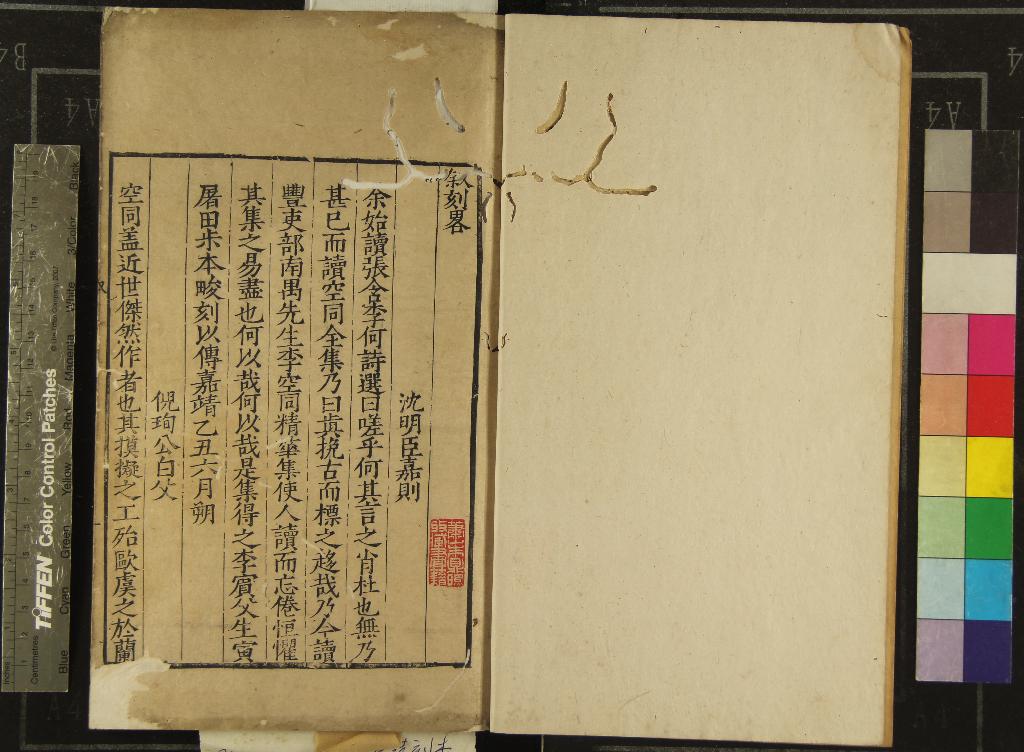 叙刻畧
沈明臣嘉則
余始讀張含李何詩選曰嗟乎何其言之肖杜也無乃
甚已而讀空同全集乃曰眞挩古而標之趍哉乃今讀
豐吏部南禺先生李空同精華集使人讀而忘倦恒懼
其集之易盡也何以哉何以哉是集得之李賔父生寅
屠田朩本畯刻以傳嘉靖乙丑六月朔
倪珣公白父
空同盖近世傑然作者也其摸擬之工殆歐虞之於蘭
TIFFEN Color Control Patches
© The Tiffen Company, 2007
Inches
Centimetres
Blue
Cyan
Green
Yellow
Red
Magenta
White
3/Color
Black
A4
A4
A4
A4
B4